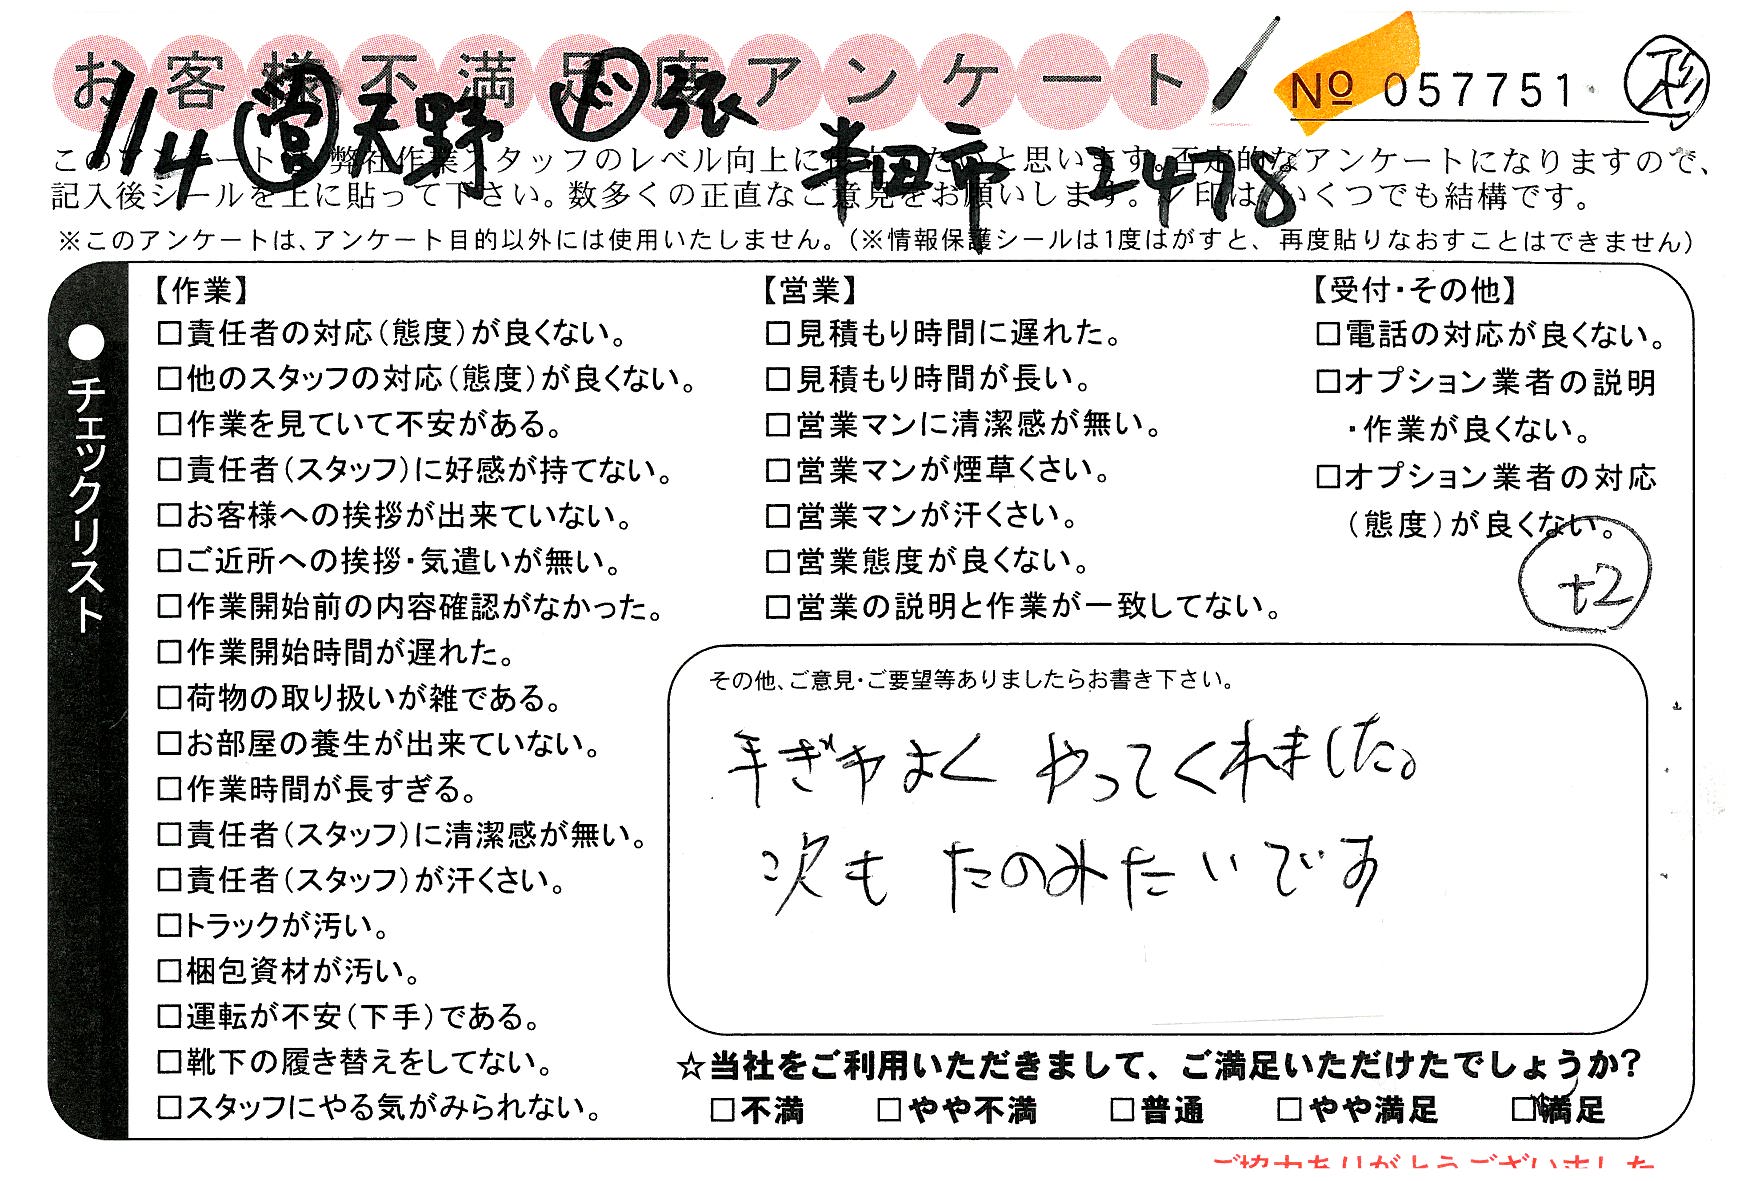 お客様不満足度アンケート
No 057751
11/4 営 天野 ド 張
半田市 2478
このアンケートは、弊社作業スタッフのレベル向上に役立てたいと思います。否定的なアンケートになりますので、
記入後シールを上に貼って下さい。数多くの正直なご意見をお願いします。✓印はいくつでも結構です。
※このアンケートは、アンケート目的以外には使用いたしません。(※情報保護シールは1度はがすと、再度貼りなおすことはできません)
●チェックリスト
【作業】
□責任者の対応(態度)が良くない。
□他のスタッフの対応(態度)が良くない。
□作業を見ていて不安がある。
□責任者(スタッフ)に好感が持てない。
□お客様への挨拶が出来ていない。
□ご近所への挨拶・気遣いが無い。
□作業開始前の内容確認がなかった。
□作業開始時間が遅れた。
□荷物の取り扱いが雑である。
□お部屋の養生が出来ていない。
□作業時間が長すぎる。
□責任者(スタッフ)に清潔感が無い。
□責任者(スタッフ)が汗くさい。
□トラックが汚い。
□梱包資材が汚い。
□運転が不安(下手)である。
□靴下の履き替えをしてない。
□スタッフにやる気がみられない。
【営業】
□見積もり時間に遅れた。
□見積もり時間が長い。
□営業マンに清潔感が無い。
□営業マンが煙草くさい。
□営業マンが汗くさい。
□営業態度が良くない。
□営業の説明と作業が一致してない。
【受付・その他】
□電話の対応が良くない。
□オプション業者の説明
・作業が良くない。
□オプション業者の対応
(態度)が良くない。
+2
その他、ご意見・ご要望等ありましたらお書き下さい。
手ぎわよく やってくれました。
次も たのみたいです
☆当社をご利用いただきまして、ご満足いただけたでしょうか?
□不満 □やや不満 □普通 □やや満足 ☑満足
ご協力ありがとうございました